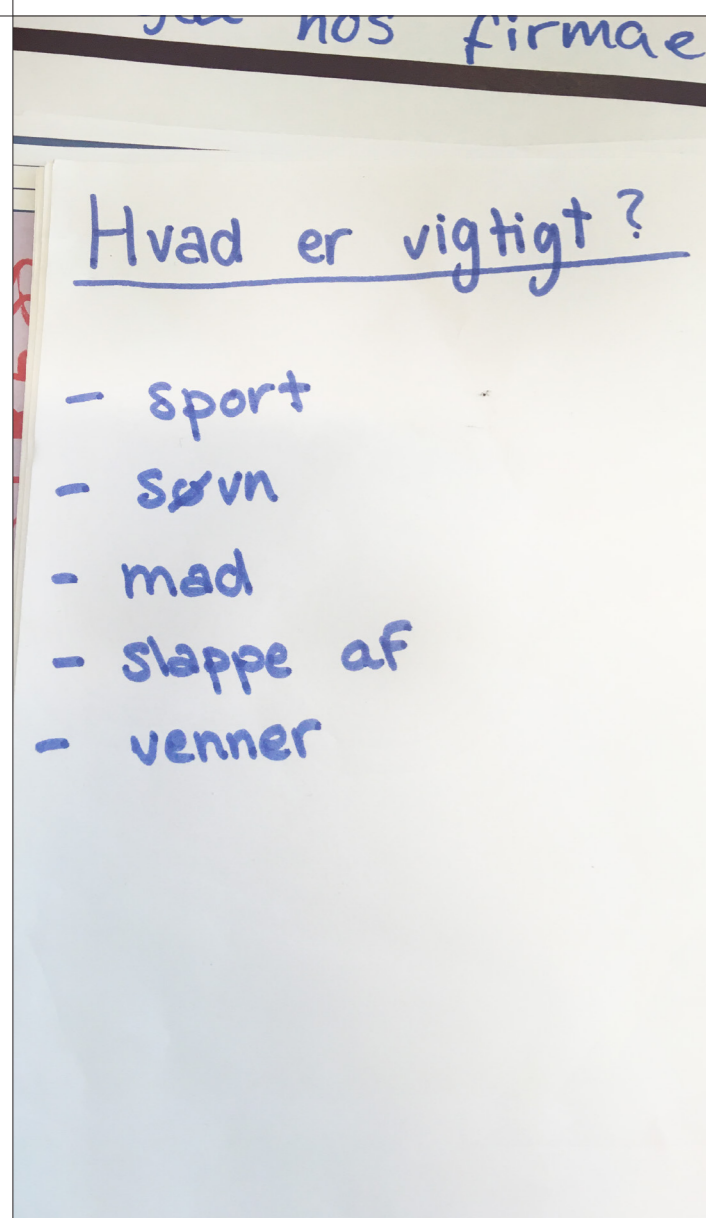 hos firmae
Hvad er vigtigt?
- sport
- søvn
- mad
- slappe af
- venner